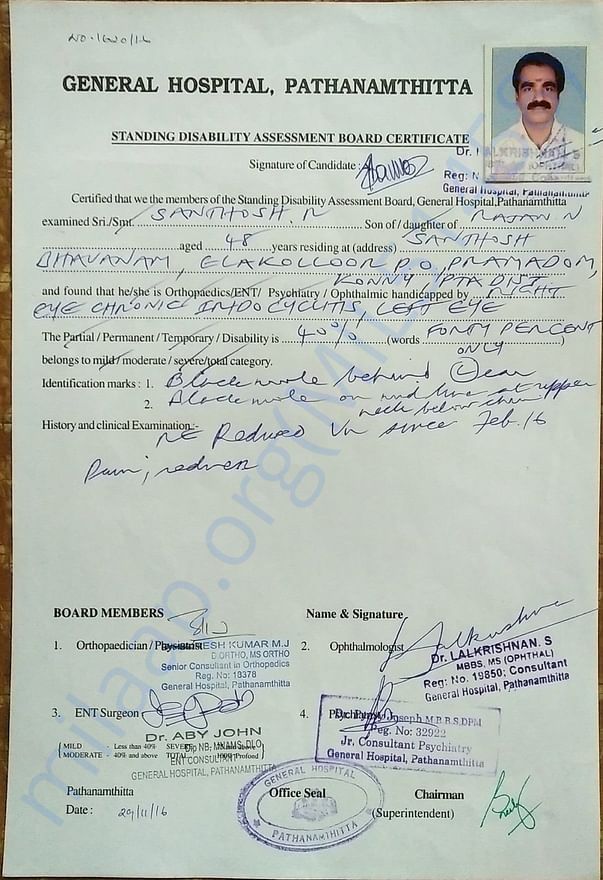 NO. 1620/16
GENERAL HOSPITAL, PATHANAMTHITTA
STANDING DISABILITY ASSESSMENT BOARD CERTIFICATE
Signature of Candidate :
Dr. LALKRISHNAN. S
(OPHTHAL)
Reg: N
General Hospital, Pathanamthitta
Certified that we the members of the Standing Disability Assessment Board, General Hospital, Pathanamthitta
examined Sri./Smt. SANTHOSH. R Son of / daughter of RAJAN N
aged 48 years residing at (address) SANTHOSH
BHAVANAM, ELAKOLLOOR P.O, PRAMADOM,
KONNY, PTA DIST
and found that he/she is Orthopaedics/ENT/ Psychiatry / Ophthalmic handicapped by RIGHT
EYE CHRONIC IRIDOCYCLITIS, LEFT EYE
The Partial / Permanent / Temporary / Disability is 40% (words FORTY PERCENT
ONLY )
belongs to mild / moderate / severe/total category.
Identification marks : 1. Black mole behind ear
2. Black mole on mid line at upper
neck below chin
History and clinical Examination:-
RE Reduced Vn since Feb. 16
Pain, redness
milaap.org
BOARD MEMBERS
Name & Signature
1. Orthopaedician / Physiatrist
ESH KUMAR M.J
D.ORTHO, MS ORTHO
Senior Consultant in Orthopedics
Reg. No: 18378
General Hospital, Pathanamthitta
2. Ophthalmologist
Dr. LALKRISHNAN. S
MBBS, MS (OPHTHAL)
Reg: No. 19850; Consultant
General Hospital, Pathanamthitta
3. ENT Surgeon
Dr. ABY JOHN
Dip NB, MNAMS, DLO
ENT CONSULTANT
GENERAL HOSPITAL, PATHANAMTHITTA
4. Psychiatrist
Joseph M.B.B.S, DPM
Reg. No: 32922
Jr. Consultant Psychiatry
General Hospital, Pathanamthitta
MILD - Less than 40%
MODERATE - 40% and above
Pathanamthitta
Date : 29/11/16
Office Seal
GENERAL HOSPITAL
PATHANAMTHITTA
Chairman
(Superintendent)